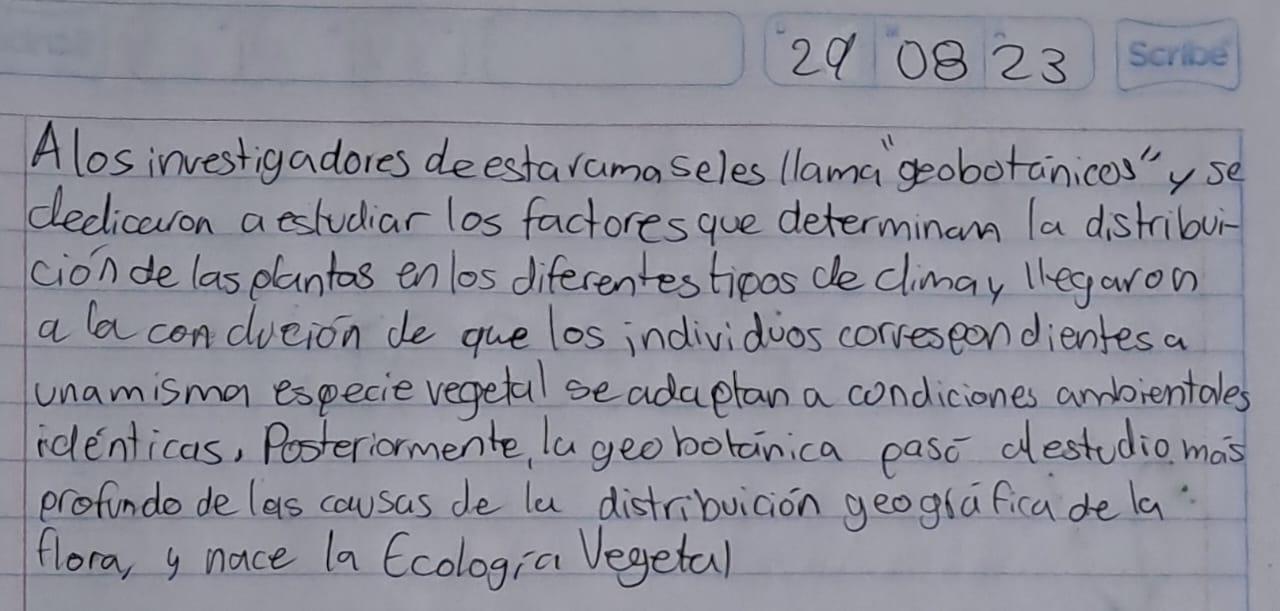 29 08 23 Scribe
A los investigadores de esta rama se les llama "geobotánicos" y se
dedicaron a estudiar los factores que determinan la distribui-
ción de las plantas en los diferentes tipos de clima y llegaron
a la conclución de que los individuos correspondientes a
una misma especie vegetal se adaptan a condiciones ambientales
idénticas, Posteriormente, la geobotánica pasó al estudio más
profundo de las causas de la distribuición geográfica de la
flora, y nace la Ecología Vegetal